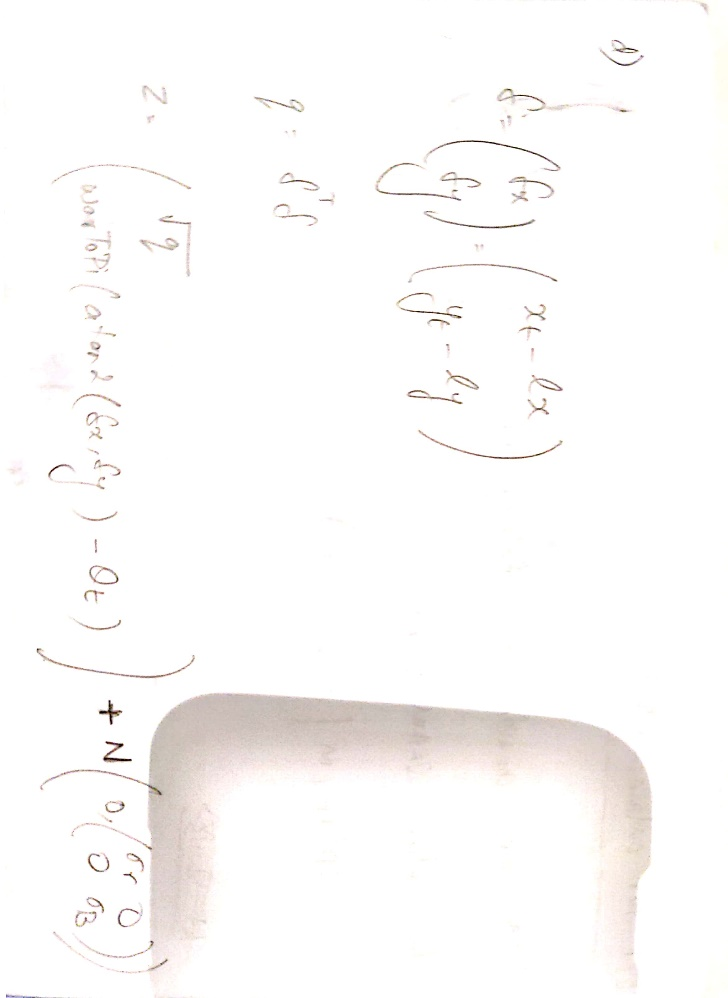 d)
δ = (δx δy) = (xt - lx yt - ly)
q = δᵀδ
z = (√q warToPi(atan2(δx, δy) - θt)) + N(0, (σr 0 0 σB))